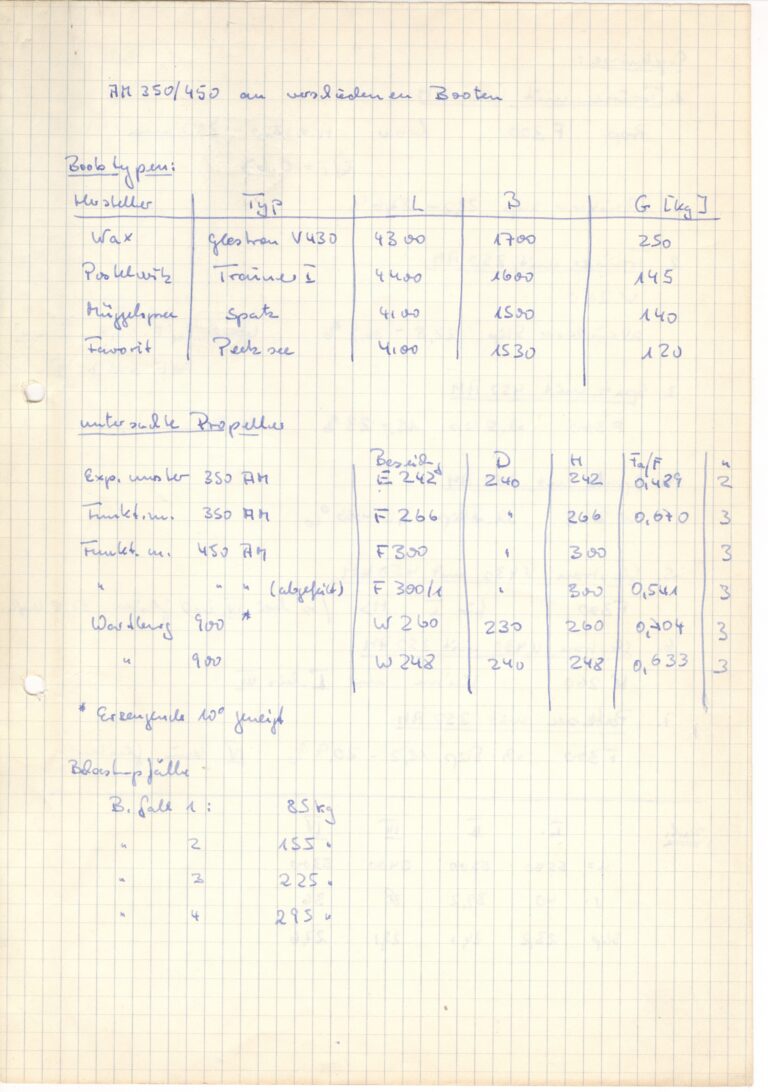 AM 350/450 an verschiedenen Booten
Bootstypen:
Hersteller Typ L B G [kg]
Wax Glastron V430 4300 1700 250
Postelwitz Trainer I 4400 1600 145
Müggelspree Spatz 4100 1500 140
Favorit Pecksee 4100 1530 120
untersuchte Propeller
Bezeichng D H Fa/F
Exp. muster 350 AM E 242 240 242 0,489 2
Funkt.m. 350 AM F 266 " 266 0,670 3
Funkt. m. 450 AM F 300 " 300 3
" " " (abgefeilt) F 300/1 " 300 0,541 3
Wartburg 900 * W 260 230 260 0,704 3
" 900 W 248 240 248 0,633 3
* Erzeugende 10° geneigt
Belastungsfälle
B. fall 1 : 85 kg
" 2 155 "
" 3 225 "
" 4 295 "